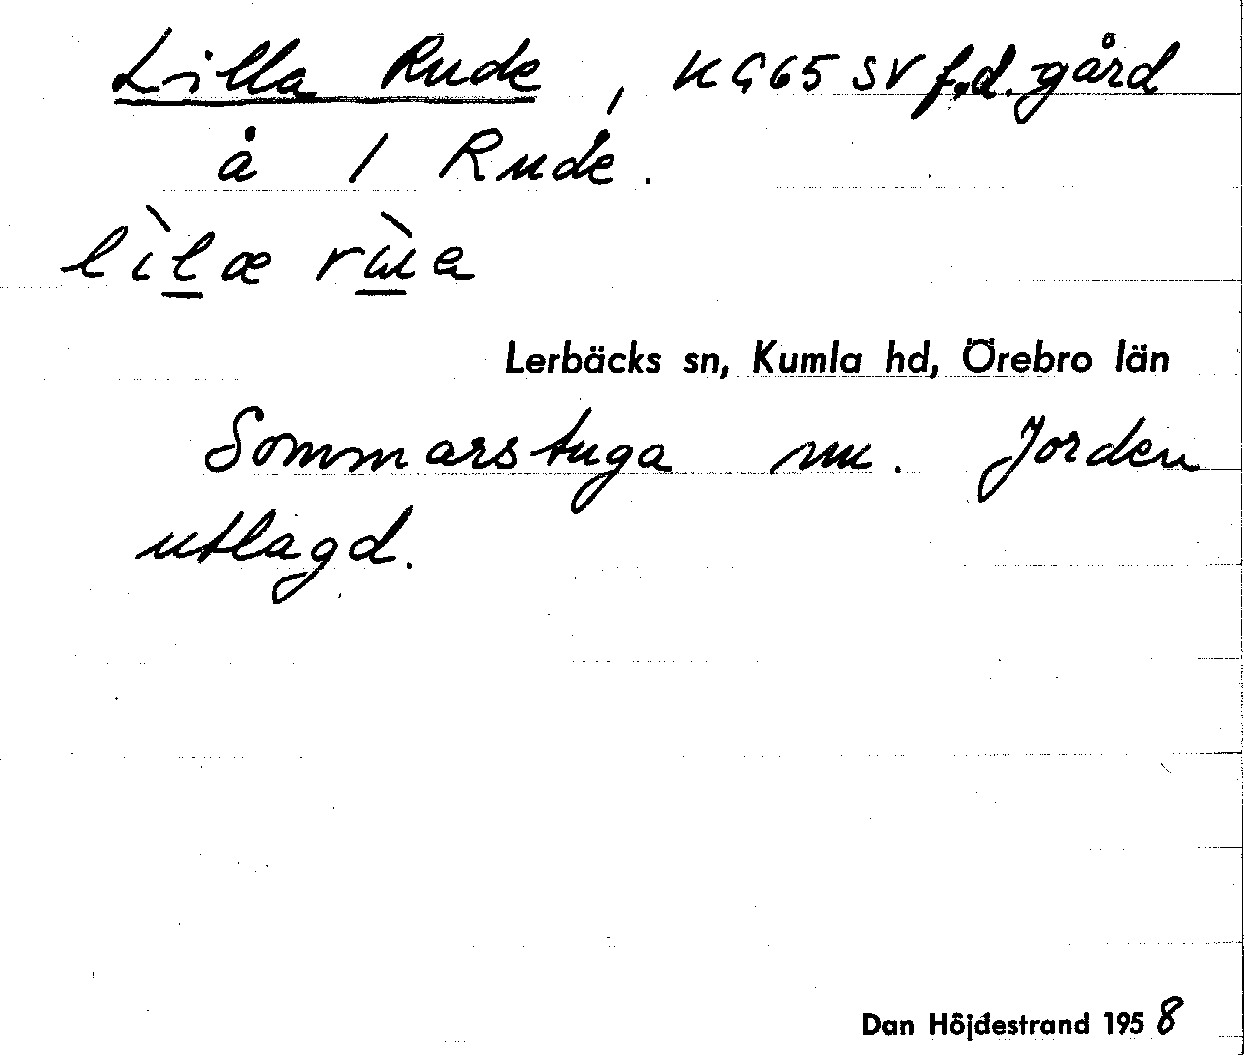 Lilla Rude, KG65 SV f.d. gård
å 1 Rude.
lìlæ rɯ̀a
Lerbäcks sn, Kumla hd, Örebro län
Sommarstuga nu. Jorden
utlagd.
Dan Höjdestrand 1958